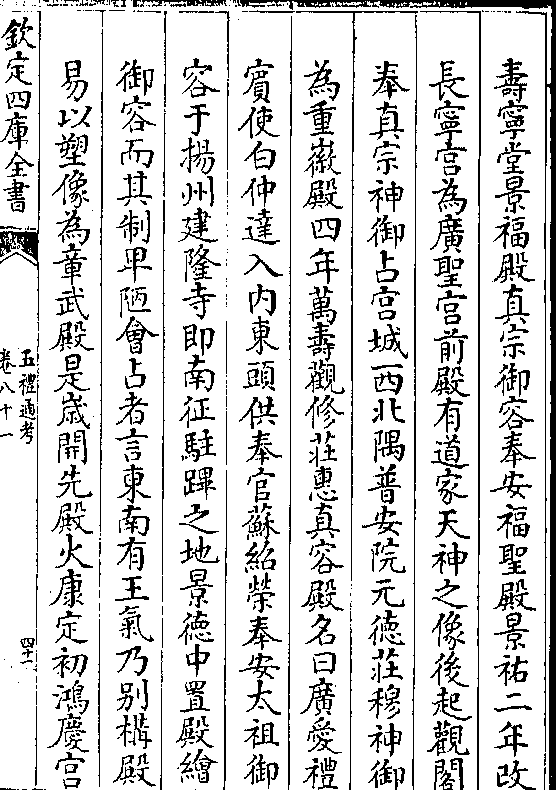 壽寧堂景福殿真宗御容奉安福聖殿景祐二年改
長寧宫為廣聖宫前殿有道家天神之像後起觀閣
奉真宗神御占宫城西北隅普安院元徳莊穆神御
為重徽殿四年萬壽觀修莊惠真容殿名曰廣愛禮
賓使白仲達入内東頭供奉官蘇紹榮奉安太祖御
容于揚州建隆寺即南征駐蹕之地景徳中置殿繪
御容而其制卑陋會占者言東南有王氣乃别構殿
易以塑像為章武殿是嵗開先殿火康定初鴻慶宫
欽定四庫全書
五禮通考
卷八十一
四十一